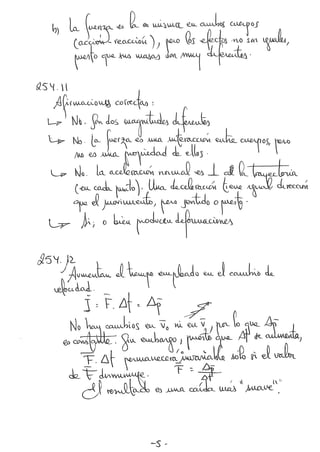 b) La fuerza es la misma en ambos cuerpos
(acción-reacción), pero los efectos no son iguales,
puesto que sus masas son muy diferentes.
254.11
Afirmaciones correctas:
↳ No. Son dos magnitudes diferentes
↳ No. La fuerza es una interacción entre cuerpos, pero
no es una propiedad de ellos.
↳ No. La aceleración normal es ⊥ a la trayectoria
(en cada punto). Una deceleración tiene igual dirección
que el movimiento, pero sentido opuesto.
↳ Sí, o bien producen deformaciones
254.12
Aumentan el tiempo empleado en el cambio de
velocidad.
I = F. Δt = Δp
No hay cambios en v₀ ni en v, por lo que Δp
es constante. Sin embargo, puesto que Δt se aumenta,
F. Δt permanecerá invariable solo si el valor
de F disminuye. F = Δp/Δt
El resultado es una caída más "suave".
-5-